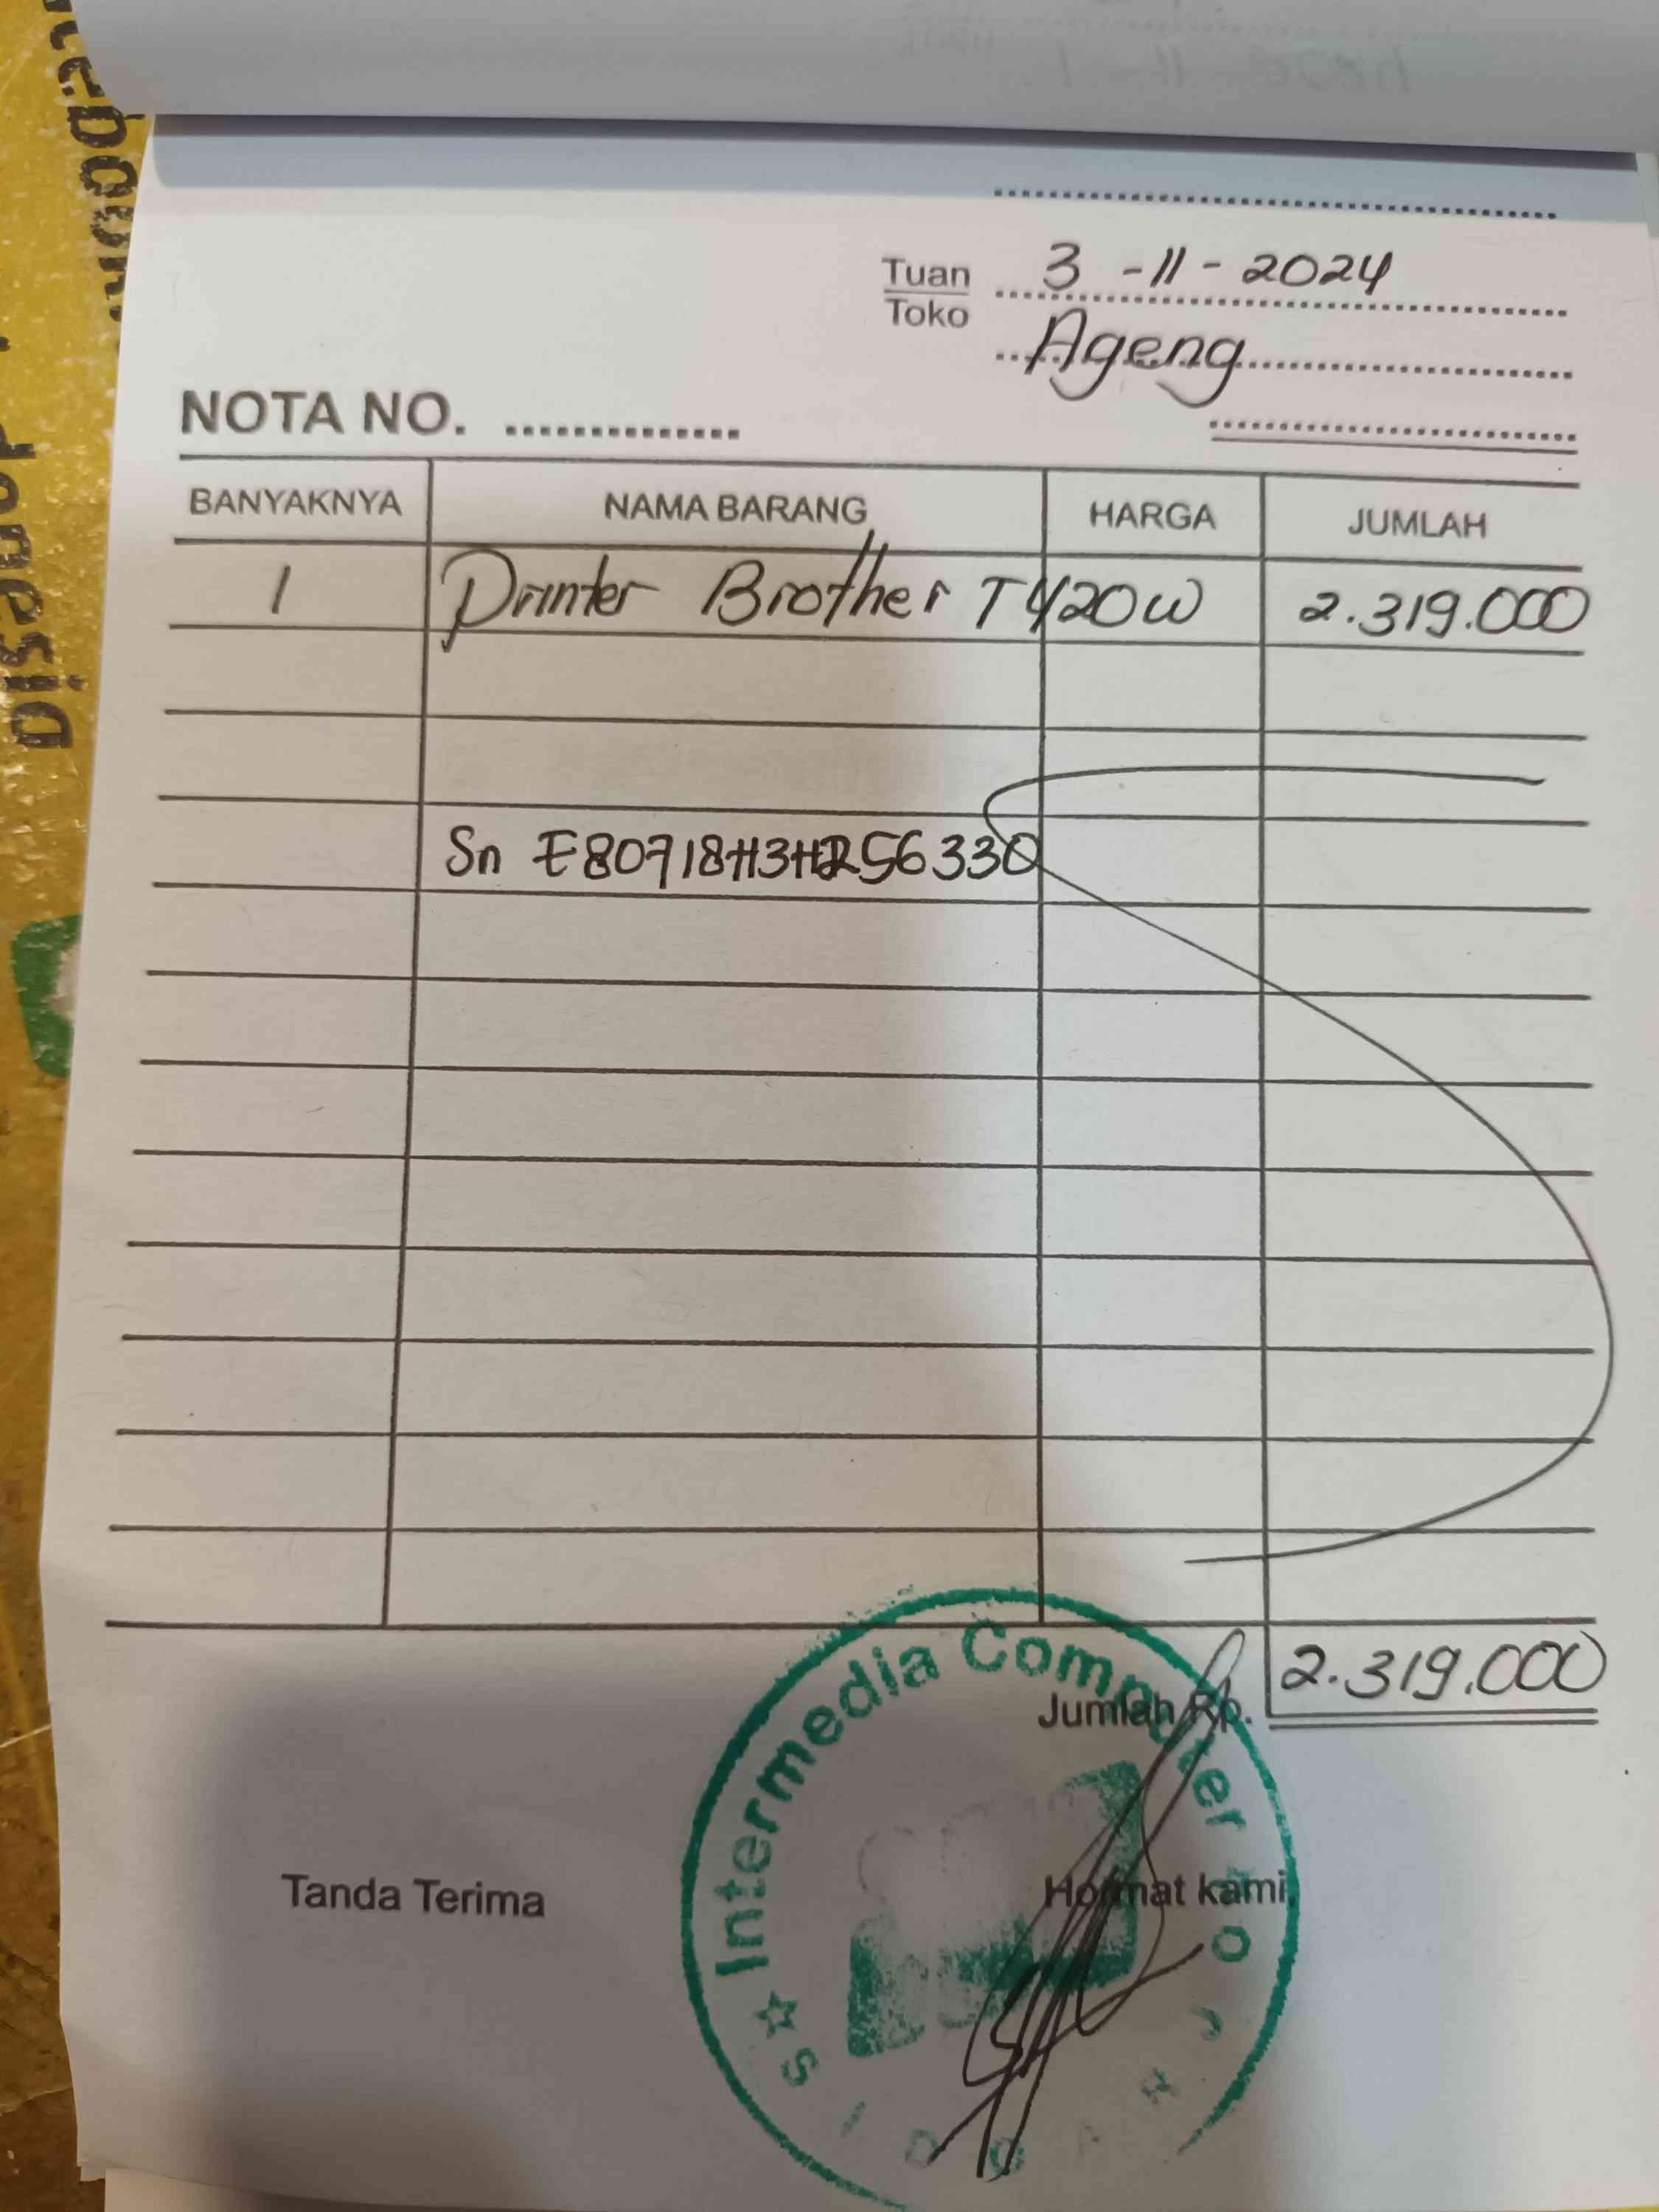 Tuan 3 - 11 - 2024
Toko Ageng
NOTA NO.
BANYAKNYA NAMA BARANG HARGA JUMLAH
1 Printer Brother T420W 2.319.000
Sn E80718H3H256330
Jumlah Rp. 2.319.000
Tanda Terima Hormat kami,
Intermedia Computer